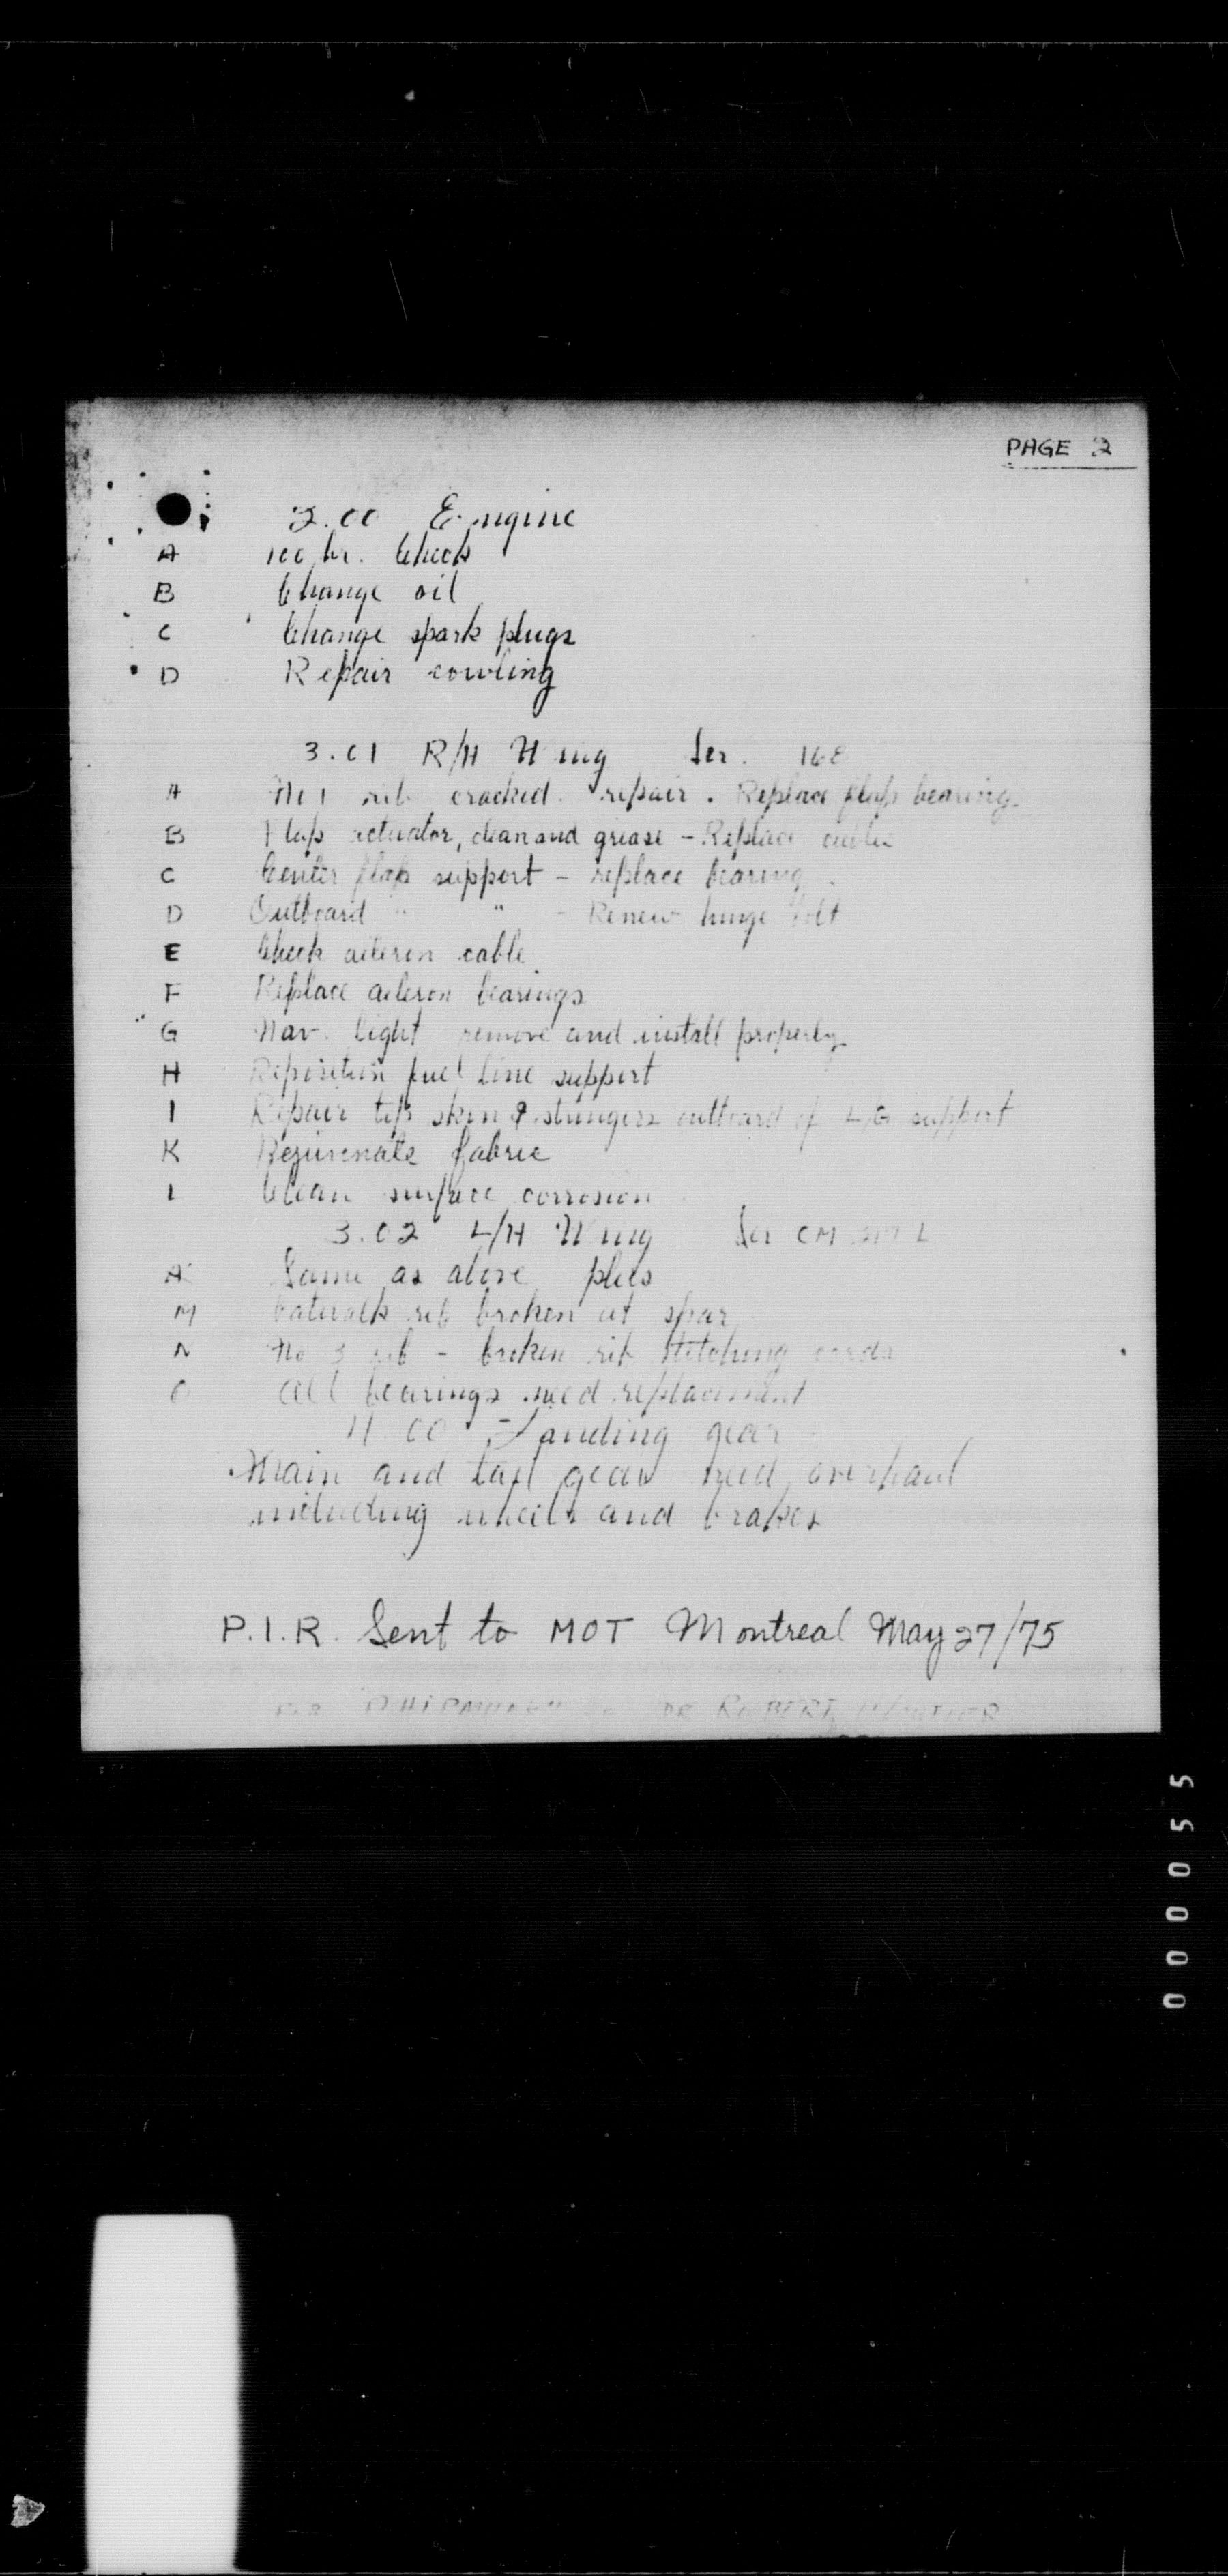 PAGE 2
2.00 Engine
A 100 hr. Check
B Change oil
C Change spark plugs
D Repair cowling
3.01 R/H Wing Ser. 168
A No 1 rib cracked repair. Replace flap bearing
B Flap actuator, clean and grease - Replace cable
C Center flap support - replace bearing.
D Outboard " " - Renew hinge bolt
E Check aileron cable
F Replace aileron bearings
G Nav. light remove and install properly
H Reposition fuel line support
I Repair top skin & stringers outboard of L/G support
K Rejuvenate fabric
L Clean surface corrosion
3.02 L/H Wing Ser CM L
A Same as above plus
M Catwalk rib broken at spar
N No 3 rib - broken rib stitching cords
O All bearings need replacement
4.00 Landing gear
Main and tail gear need overhaul
including wheels and brakes
P.I.R. Sent to MOT Montreal May 27/75
"CHIPMUNK" DR ROBERT
000055